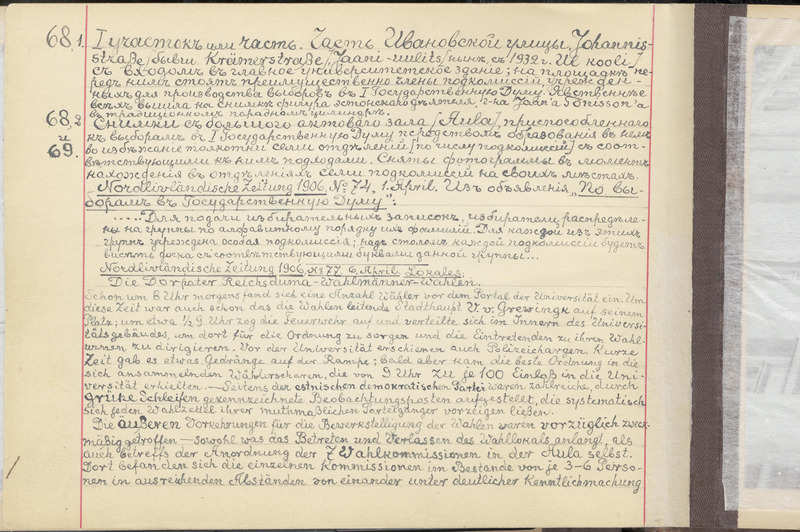 68,1. I участокъ или часть. Часть Ивановской улицы, Johannis-
straße /бывш. Krämerstraße, Jaani-uulits/ нынѣ, съ 1932 г. Ülikooli/
съ входомъ въ главное университетское здание; на площадкѣ пе-
редъ нимъ стоятъ преимущественно члены подкомиссій, учрежден-
ныхъ для производства выборовъ въ I Государственную Думу. Явственнѣе
всѣхъ вышла на снимкѣ фигура эстонскаго дѣятеля, г-на Jaan'a Tõnisson'a
въ традиционномъ парадномъ цилиндрѣ.
68,2 Снимки съ большого актоваго зала /Aula/, приспособленнаго
и къ выборамъ въ I Государственную Думу посредствомъ образования въ немъ
69. во избѣжание толкотни семи отдѣлений /по числу подкомиссий/ съ соот-
вѣтствующими къ нимъ подходами. Сняты фотограммы въ моментъ
нахождения въ отдѣленияхъ семи подкомиссий на своихъ мѣстахъ.
Nordlivländische Zeitung 1906, № 74, 1. April. Изъ объявления „По вы-
борамъ въ Государственную Думу":
.....Для подачи избирательныхъ записокъ, избиратели распредѣле-
ны на группы по алфавитному порядку ихъ фамилий. Для каждой изъ этихъ
группъ учреждена особая подкомиссія; надъ столомъ каждой подкомиссии будетъ
висѣть доска съ соотвѣтствующими буквами данной группы...
Nordlivländische Zeitung 1906, № 77. 6. April. Lokales.
Die Dorpater Reichsduma-Wahlmänner-Wahlen.
Schon um 8 Uhr morgens fand sich eine Anzahl Wähler vor dem Portal der Universität ein. Um
diese Zeit war auch schon das die Wahlen leitende Stadthaupt V. v. Grewingk auf seinem
Platz; um etwa ½9 Uhr zog die Feuerwehr auf und verteilte sich im Innern des Universi-
tätsgebäudes, um dort für die Ordnung zu sorgen und die Eintretenden zu ihren Wahl-
urnen zu dirigieren. Vor der Universität erschienen auch Polizeichargen. Kurze
Zeit gab es etwas Gedränge auf der Rampe; bald aber kam die beste Ordnung in die
sich ansammelnden Wählerscharen, die von 9 Uhr zu je 100 Einlaß in die Uni-
versität erhielten. — Seitens der estnischen demokratischen Partei waren zahlreiche, durch
grüne Schleifen gekennzeichnete Beobachtungsposten aufgestellt, die systematisch
sich jeden Wahlzettel ihrer muthmaßlichen Parteigänger vorzeigen ließen.
Die äußeren Vorkehrungen für die Bewerkstelligung der Wahlen waren vorzüglich zweck-
mäßig getroffen — sowohl was das Betreten und Verlassen des Wahllokals anlangt, als
auch betreffs der Anordnung der 7 Wahlkommissionen in der Aula selbst.
Dort befanden sich die einzelnen Kommissionen im Bestande von je 3-6 Perso-
nen in ausreichenden Abständen von einander unter deutlicher Kenntlichmachung